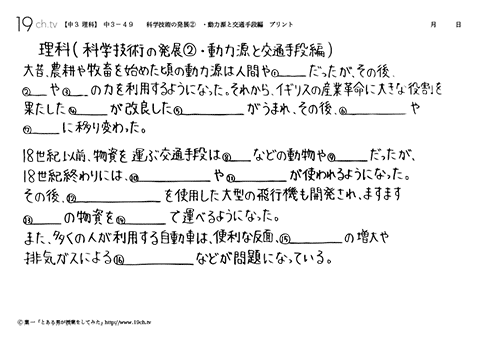 19ch.tv 【中3 理科】 中3-49 科学技術の発展② ・動力源と交通手段編 プリント 月 日
理科(科学技術の発展②・動力源と交通手段編)
大昔、農耕や牧畜を始めた頃の動力源は人間や①____だったが、その後、
②__や③__の力を利用するようになった。それから、イギリスの産業革命に大きな役割を
果たした④____が改良した⑤________がうまれ、その後、⑥______や
⑦____に移り変わった。
18世紀以前、物資を運ぶ交通手段は⑧__などの動物や⑨____だったが、
18世紀終わりには、⑩______や⑪______が使われるようになった。
その後、⑫________を使用した大型の飛行機も開発され、ますます
⑬____の物資を⑭____で運べるようになった。
また、多くの人が利用する自動車は、便利な反面、⑮______の増大や
排気ガスによる⑯______などが問題になっている。
© 葉一「とある男が授業をしてみた」http://www.19ch.tv